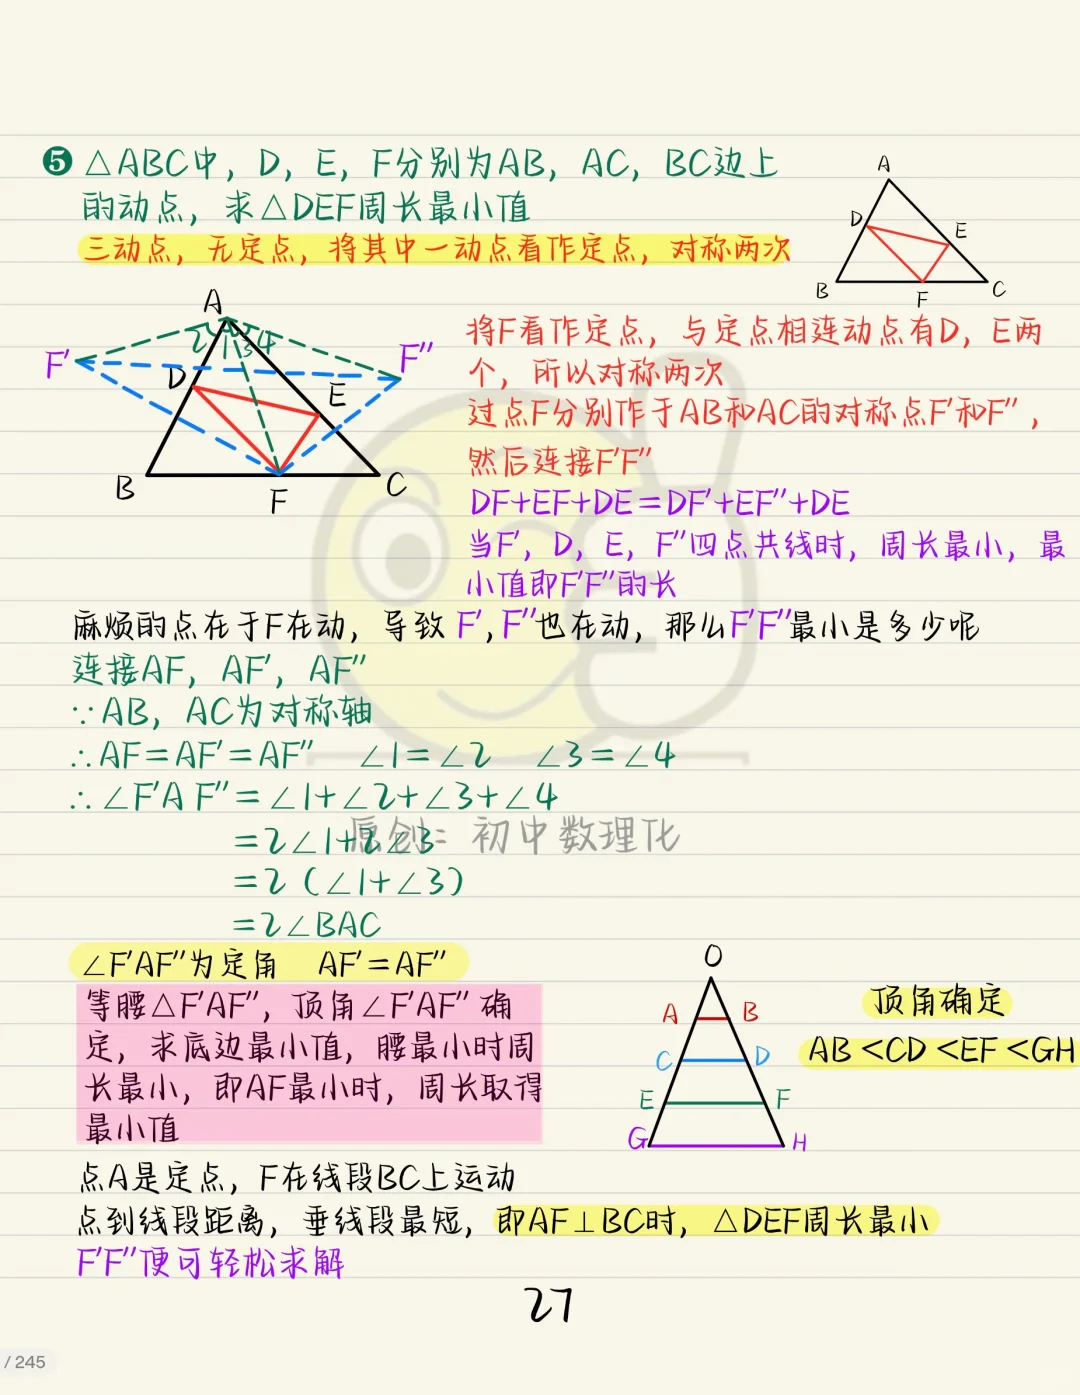 ❺ △ABC中，D，E，F分别为AB，AC，BC边上
的动点，求△DEF周长最小值
三动点，无定点，将其中一动点看作定点，对称两次
A
D
E
B
F
C
A
2
1
3
4
F′
F″
D
E
B
F
C
将F看作定点，与定点相连动点有D，E两
个，所以对称两次
过点F分别作于AB和AC的对称点F′和F″，
然后连接F′F″
DF+EF+DE=DF′+EF″+DE
当F′，D，E，F″四点共线时，周长最小，最
小值即F′F″的长
麻烦的点在于F在动，导致F′,F″也在动，那么F′F″最小是多少呢
连接AF，AF′，AF″
∵AB，AC为对称轴
∴AF=AF′=AF″ ∠1=∠2 ∠3=∠4
∴∠F′AF″=∠1+∠2+∠3+∠4
=2∠1+2∠3
原创：初中数理化
=2（∠1+∠3）
=2∠BAC
∠F′AF″为定角 AF′=AF″
等腰△F′AF″，顶角∠F′AF″确
定，求底边最小值，腰最小时周
长最小，即AF最小时，周长取得
最小值
O
A
B
C
D
E
F
G
H
顶角确定
AB<CD<EF<GH
点A是定点，F在线段BC上运动
点到线段距离，垂线段最短，即AF⊥BC时，△DEF周长最小
F′F″便可轻松求解
27
/ 245